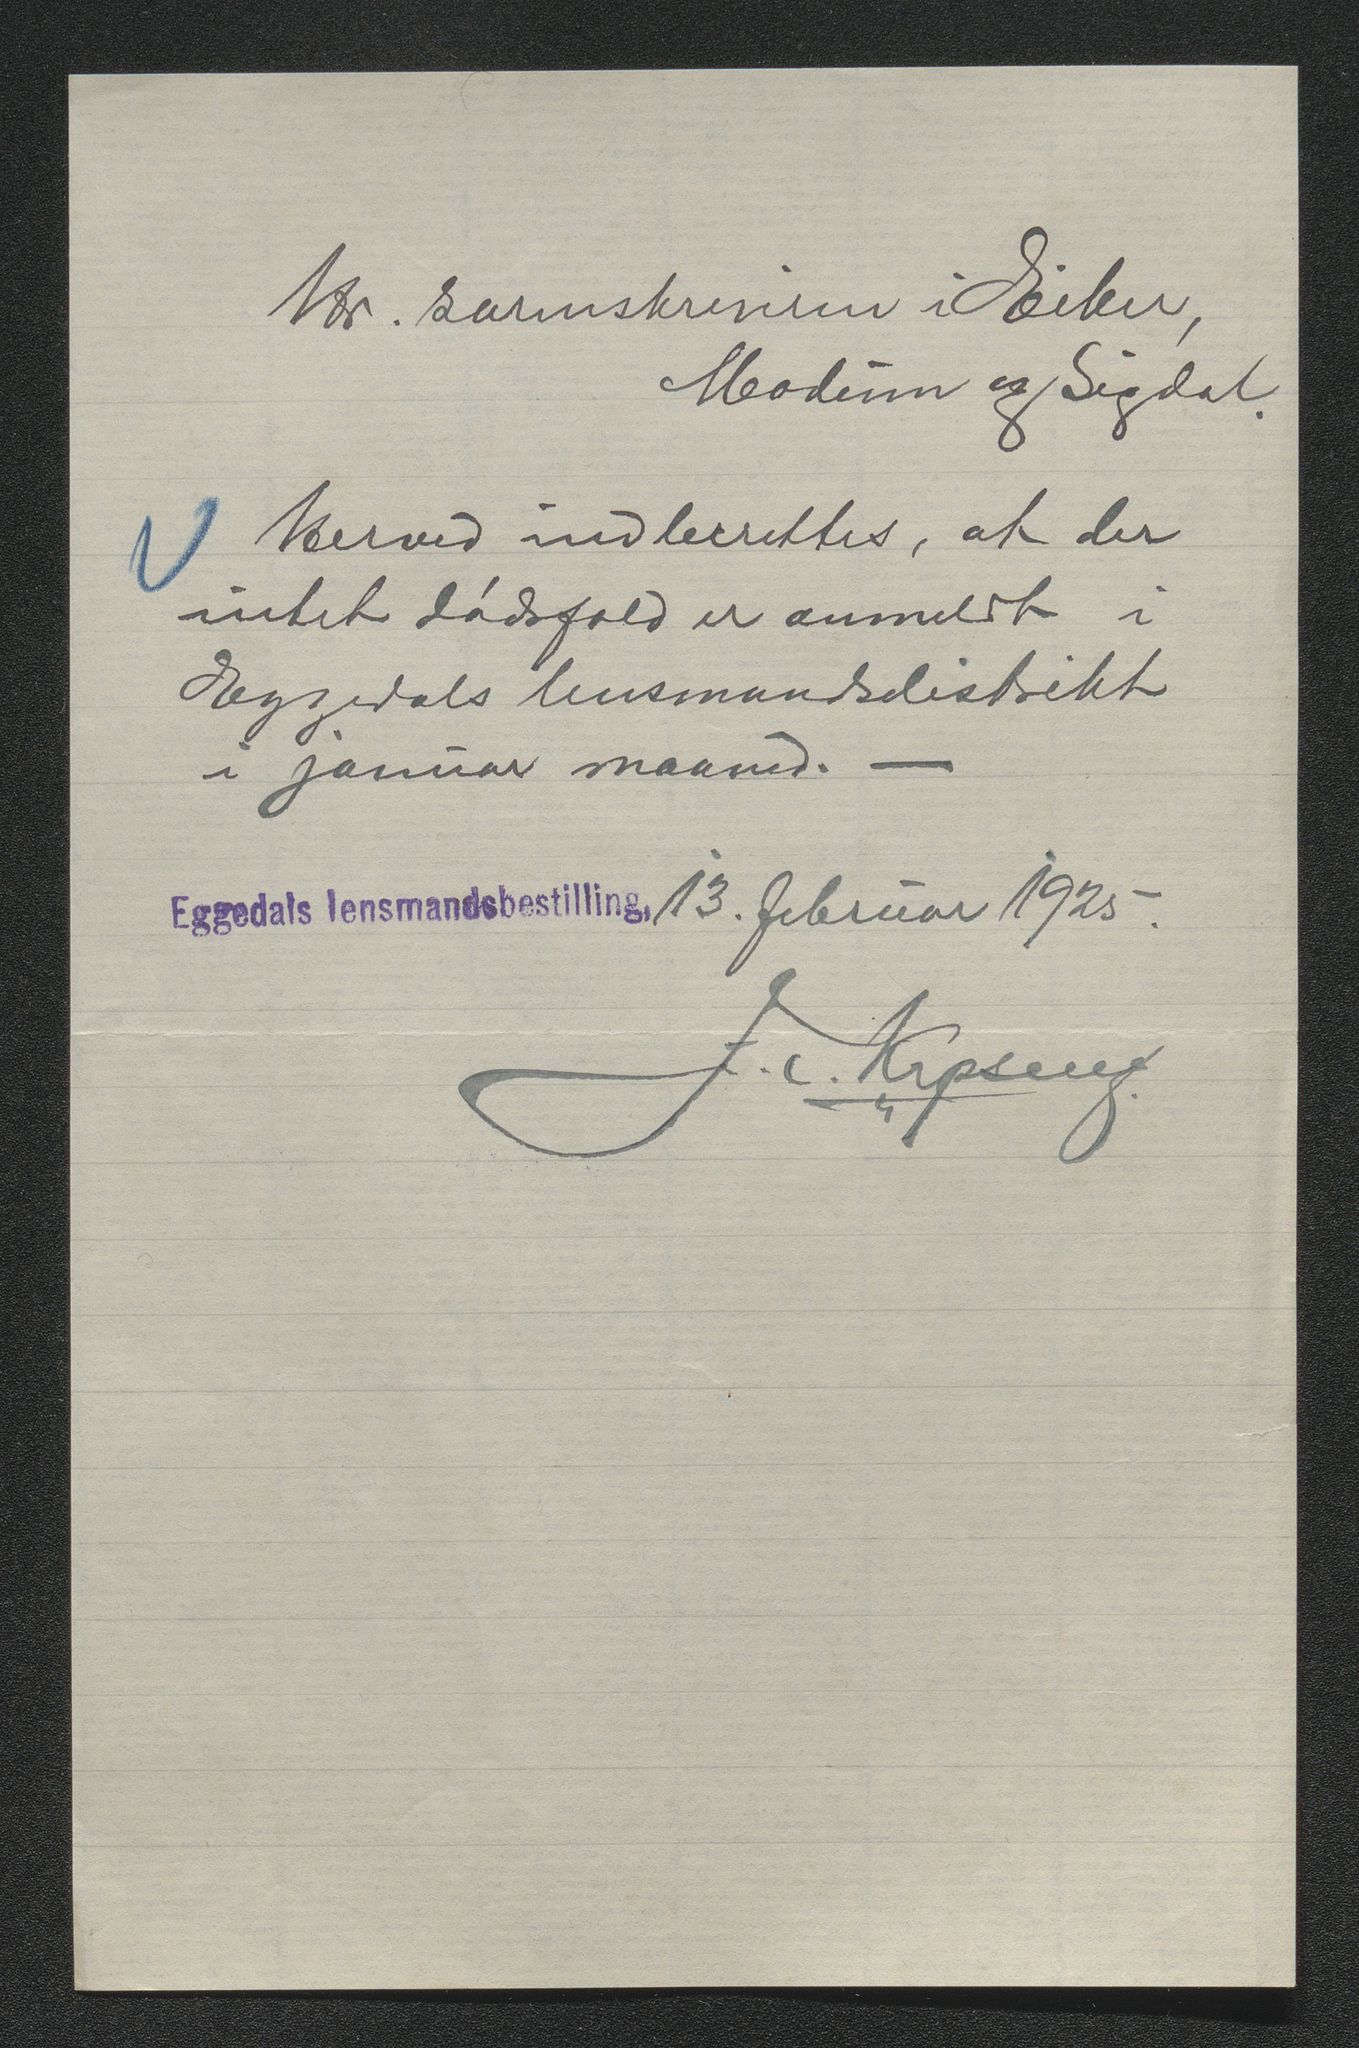 Hr. sorenskriveren i Eiker,
Modum og Sigdal.
Herved indberettes, at der
intet dødsfald er anmeldt i
Eggedals lensmandsdistrikt
i januar maaned. —
Eggedals lensmandsbestilling, 13. februar 1925.